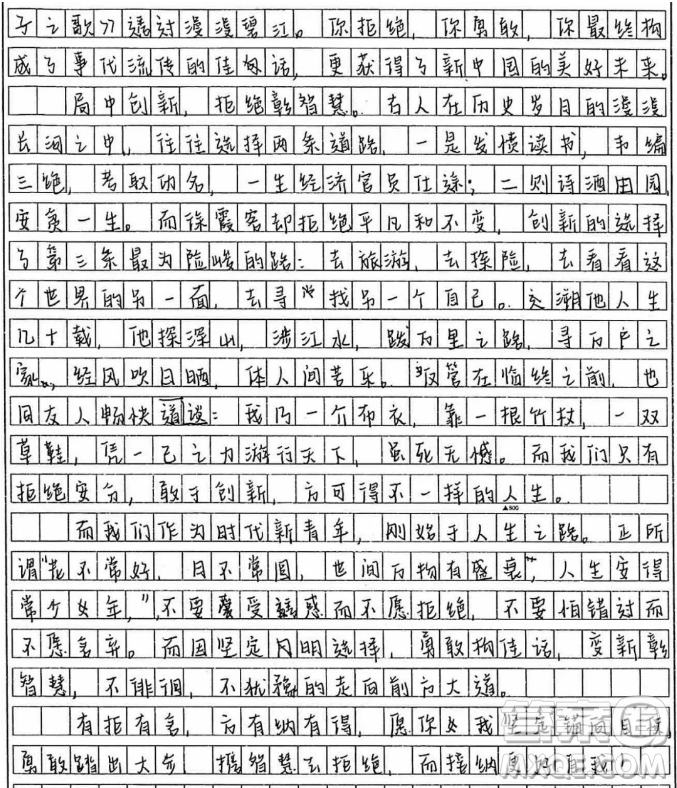 子之歌》透过漫漫碧江。你拒绝，你勇敢，你最终构
成了事代流传的佳句话，更获得了新中国的美好未来。
局中创新，拒绝彰智慧。古人在历史岁月的漫漫
长河之中，往往选择两条道路，一是发愤读书，韦编
三绝，考取功名，一生经济官员仕途；二则诗酒田园，
安度一生。而徐霞客却拒绝平凡和不变，创新的选择
了第三条最为险峻的路：去旅游，去探险，去看看这
个世界的另一面，去寻找另一个自己。交溯他人生
几十载，他探深山，涉江水，跋万里之路，寻万户之
家，经风吹日晒，体人间苦乐。尽管在临终之前，也
同友人畅快道谈：我乃一个布衣，靠一根竹杖，一双
草鞋，凭一己之力游行天下，虽死无憾。而我们只有
拒绝安分，敢于创新，方可得不一择的人生。
▲800
而我们作为时代新青年，刚始于人生之路。正所
谓“花不常好，月不常圆，也间万物有盛衰”，人生安得
常少女年，”不要爱受诱惑而不愿拒绝，不要怕错过而
不愿舍弃。而因坚定闪明选择，勇敢构佳话，变新彰
智慧，不徘徊，不犹豫的走向前方大道。
有拒有舍，方有纳有得，愿你我坚定锚向目标，
勇敢踏出大步，携智慧去拒绝，而接纳